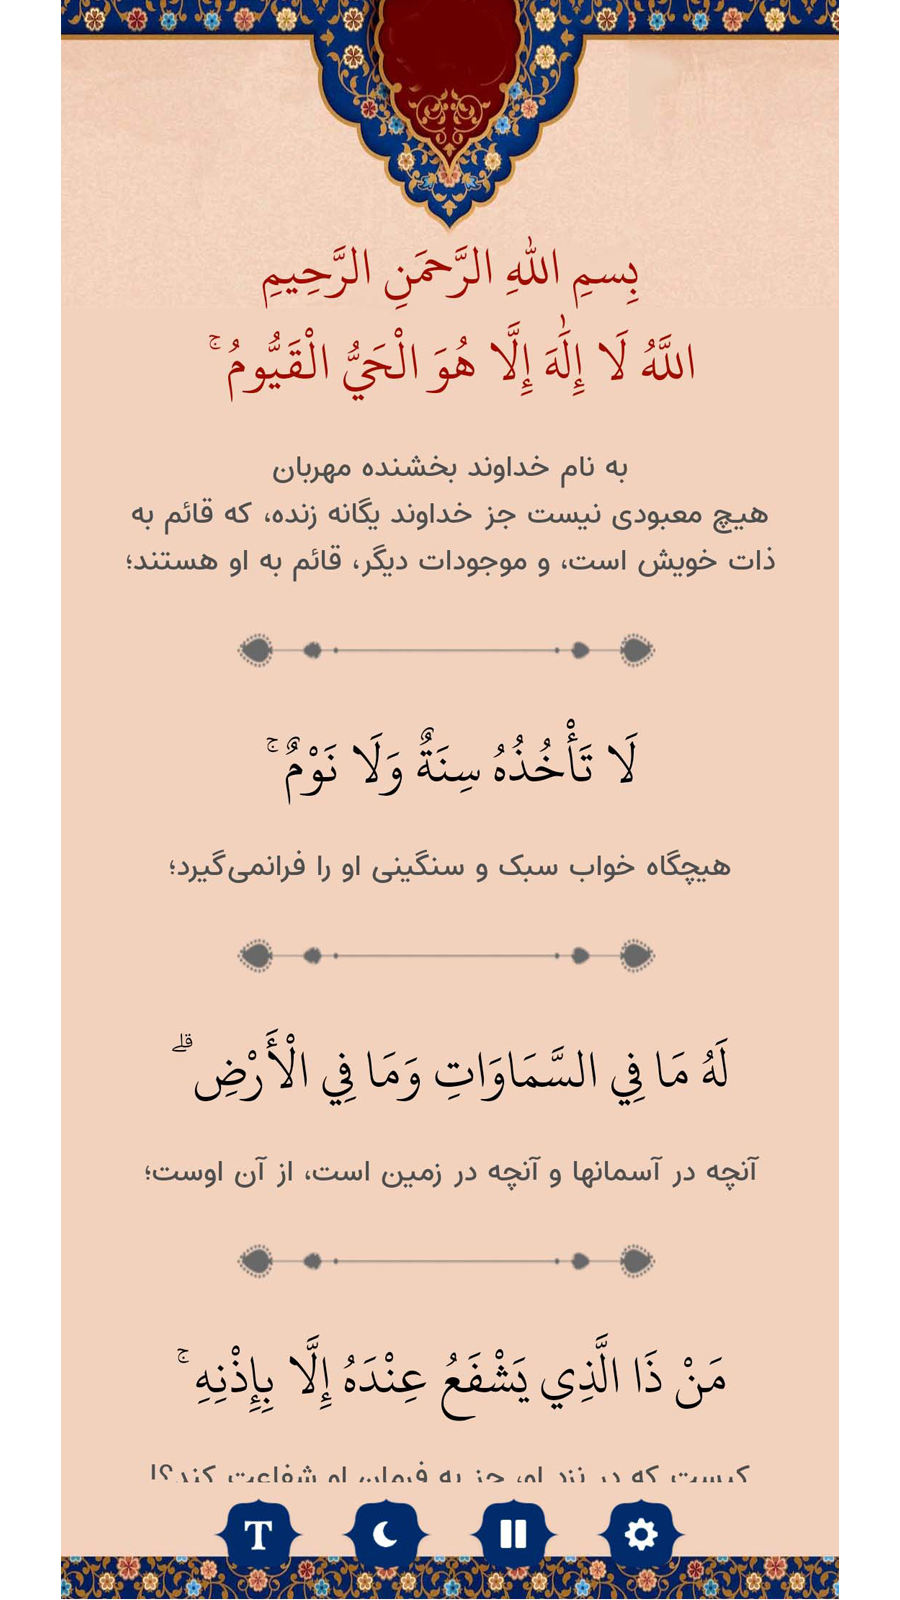 بِسمِ اللهِ الرَّحمَنِ الرَّحِيمِ
اللَّهُ لَا إِلَٰهَ إِلَّا هُوَ الْحَيُّ الْقَيُّومُ ۚ
به نام خداوند بخشنده مهربان
هیچ معبودی نیست جز خداوند یگانه زنده، که قائم به
ذات خویش است، و موجودات دیگر، قائم به او هستند؛
لَا تَأْخُذُهُ سِنَةٌ وَلَا نَوْمٌ ۚ
هیچگاه خواب سبک و سنگینی او را فرانمی‌گیرد؛
لَهُ مَا فِي السَّمَاوَاتِ وَمَا فِي الْأَرْضِ ۗ
آنچه در آسمانها و آنچه در زمین است، از آن اوست؛
مَنْ ذَا الَّذِي يَشْفَعُ عِنْدَهُ إِلَّا بِإِذْنِهِ ۚ
کیست که در نزد او، جز به فرمان او شفاعت کند؟!
T